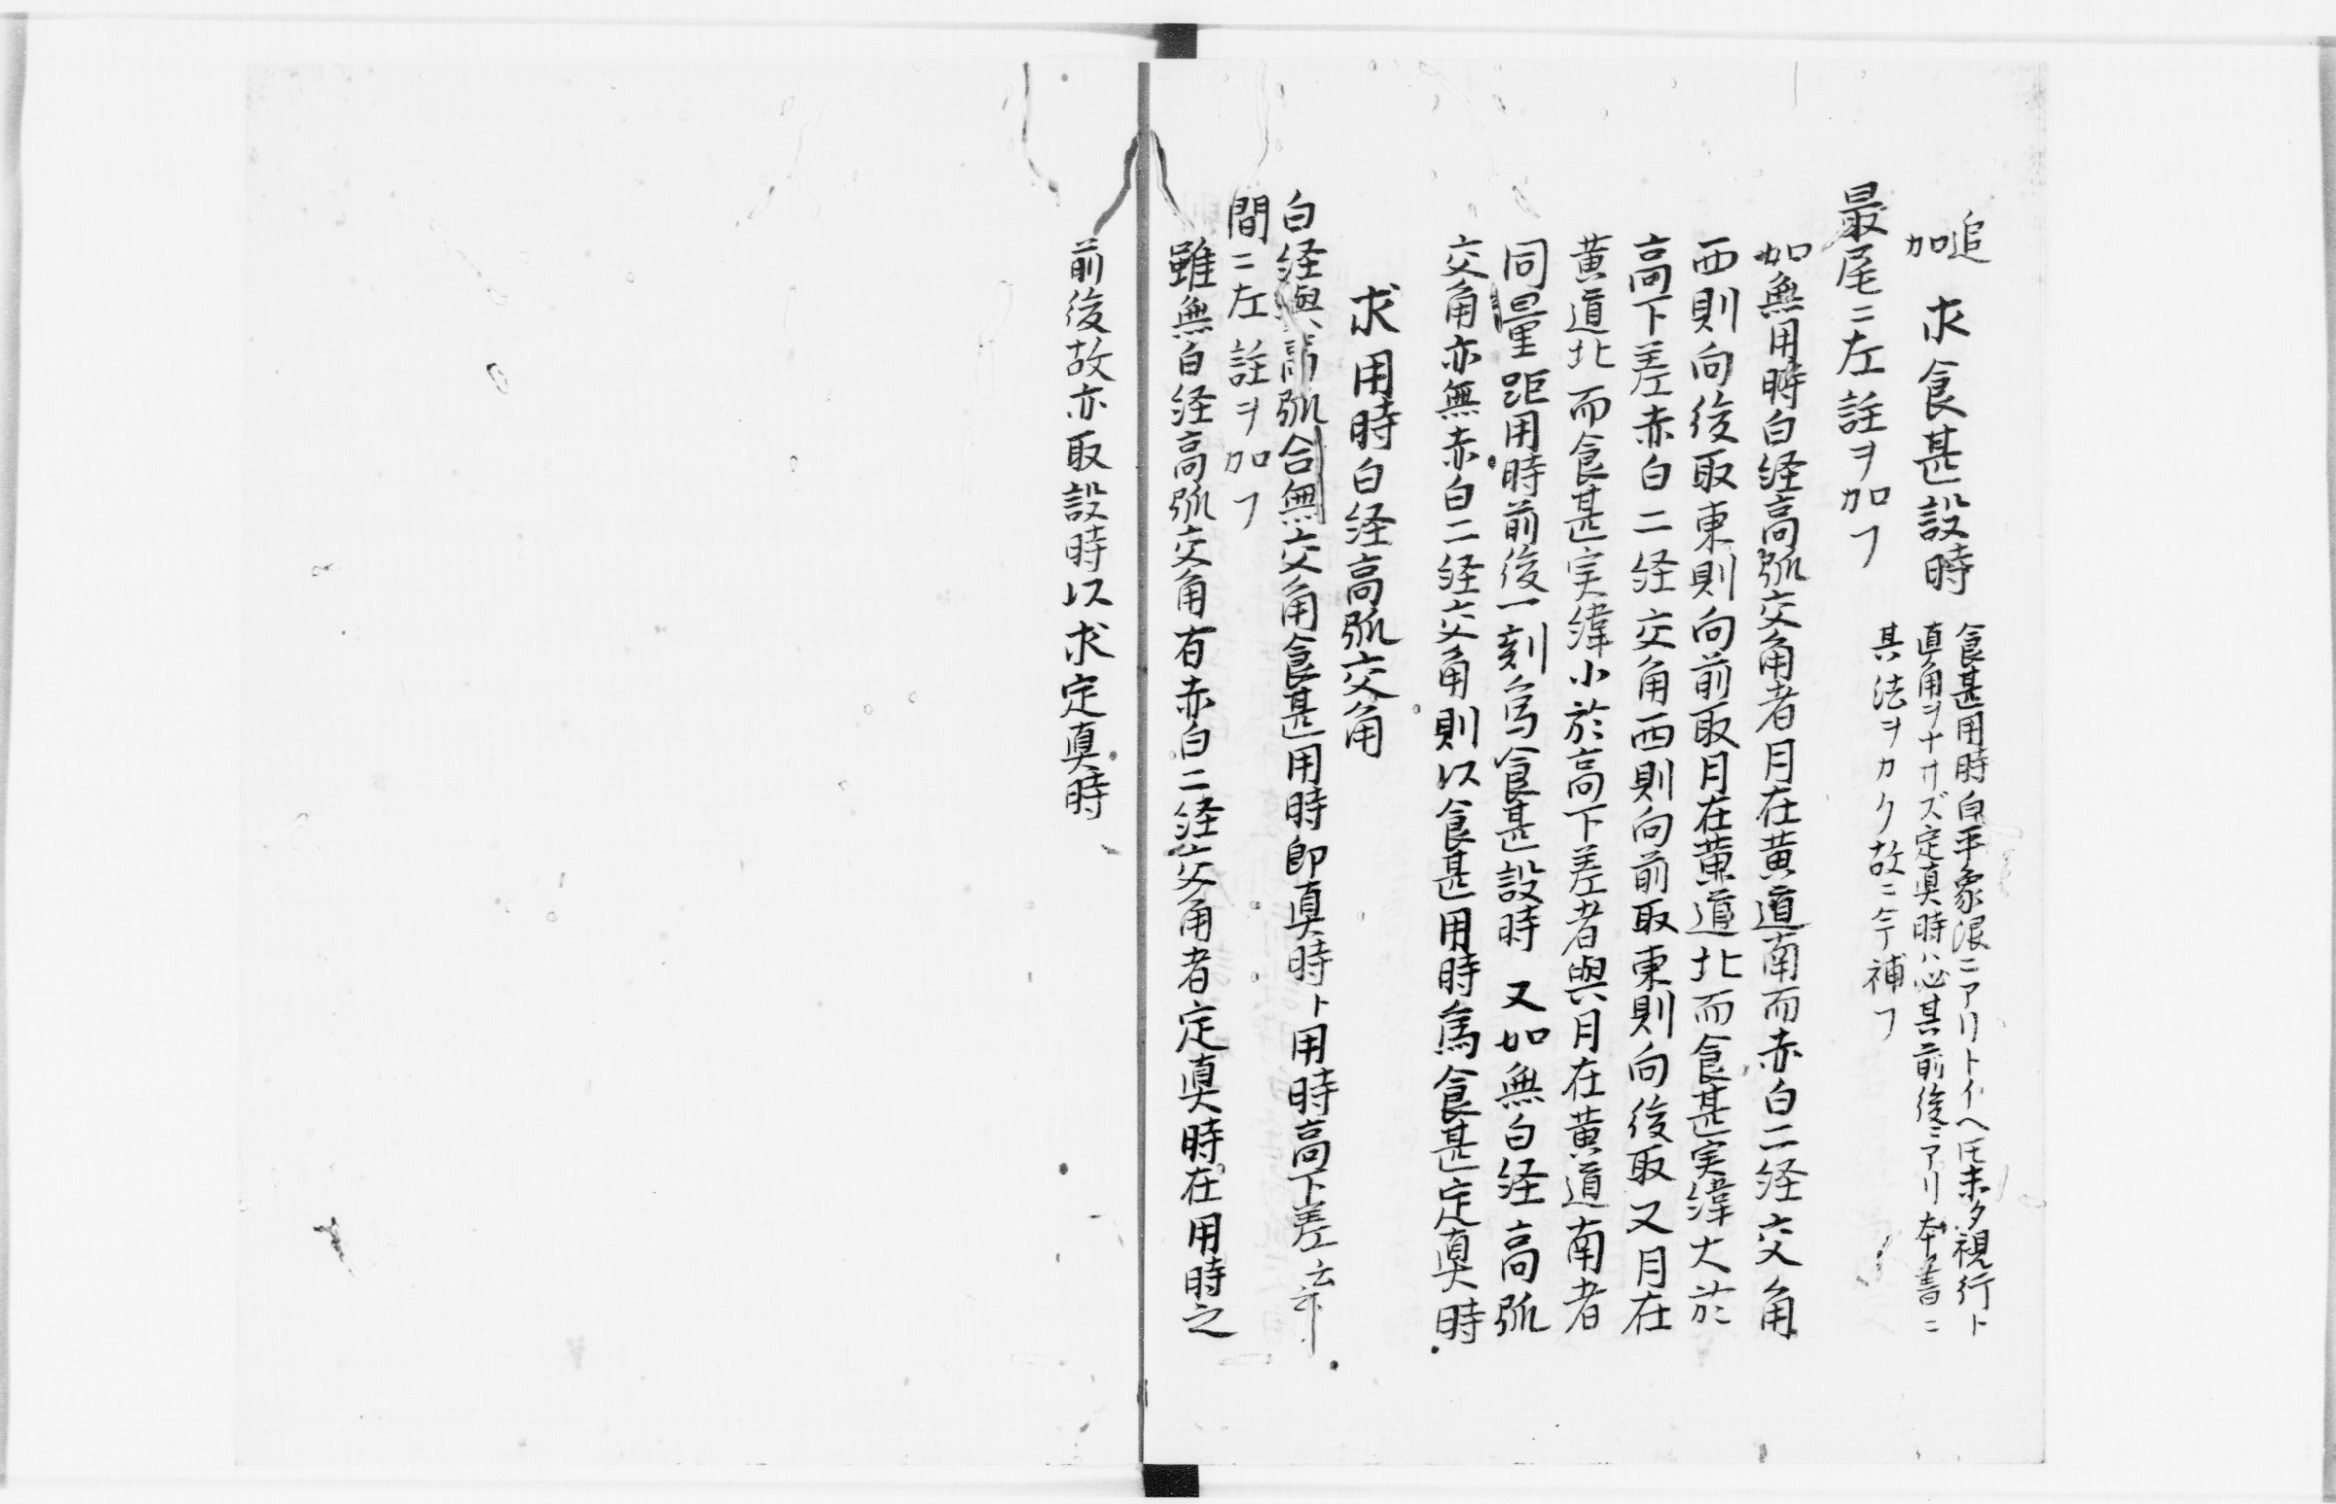 追加 求食甚設時
食甚用時白平象限ニアリトイヘ𪜈未タ視行ト
直角ヲナサズ定真時ハ必其前後ニアリ本書ニ
其法ヲカク故ニ今補フ
最尾ニ左註ヲ加フ
如無用時白経高弧交角者月在黄道南而赤白二経交角
西則向後取東則向前取月在黄道北而食甚実緯大於
高下差赤白二経交角西則向前取東則向後取又月在
黄道北而食甚実緯小於高下差者與月在黄道南者
同量距用時前後一刻為食甚設時又如無白経高弧
交角亦無赤白二経交角則以食甚用時為食甚定真時
求用時白経高弧交角
白経與高弧合無交角食甚用時即真時ト用時高下差云々
間ニ左註ヲ加フ
雖無白経高弧交角有赤白二経交角者定真時在用時之
前後故亦取設時以求定真時